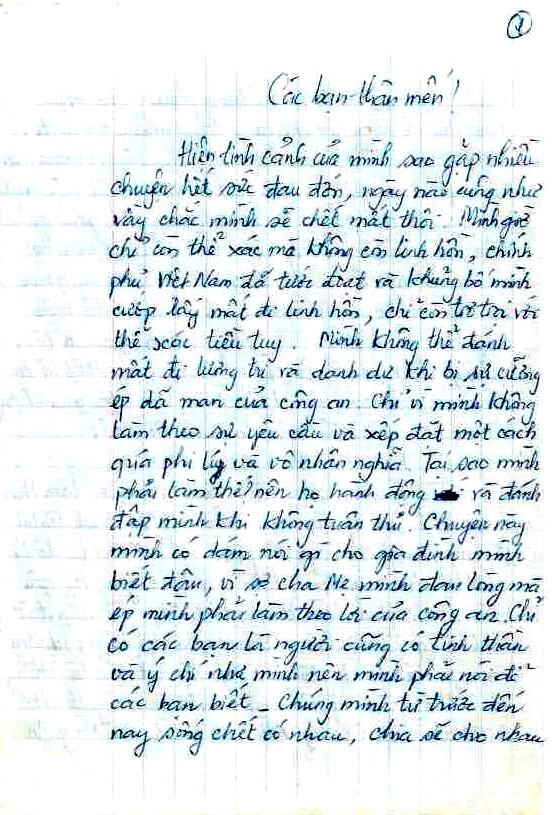 1
Các bạn thân mến!
Hiện tình cảnh của mình sao gặp nhiều
chuyện hết sức đau đớn, ngày nào cũng như
vậy chắc mình sẽ chết mất thôi. Mình giờ
chỉ còn thể xác mà không còn linh hồn, chính
phủ Việt Nam đã tước đoạt và khủng bố mình
cướp lấy mất đi linh hồn, chỉ còn trơ trọi với
thể xác tiều tụy. Mình không thể đánh
mất đi lương tri và danh dự khi bị sự cưỡng
ép dã man của công an. Chỉ vì mình không
làm theo sự yêu cầu và xếp đặt một cách
quá phi lý và vô nhân nghĩa. Tại sao mình
phải làm thế? nên họ hành động và đánh
đập mình khi không tuân thủ. Chuyện này
mình có dám nói gì cho gia đình mình
biết đâu, vì sợ cha Mẹ mình đau lòng mà
ép mình phải làm theo lời của công an. Chỉ
có các bạn là người cùng có tinh thần
và ý chí như mình nên mình phải nói để
các bạn biết _ Chúng mình từ trước đến
nay sống chết có nhau, chia sẽ cho nhau